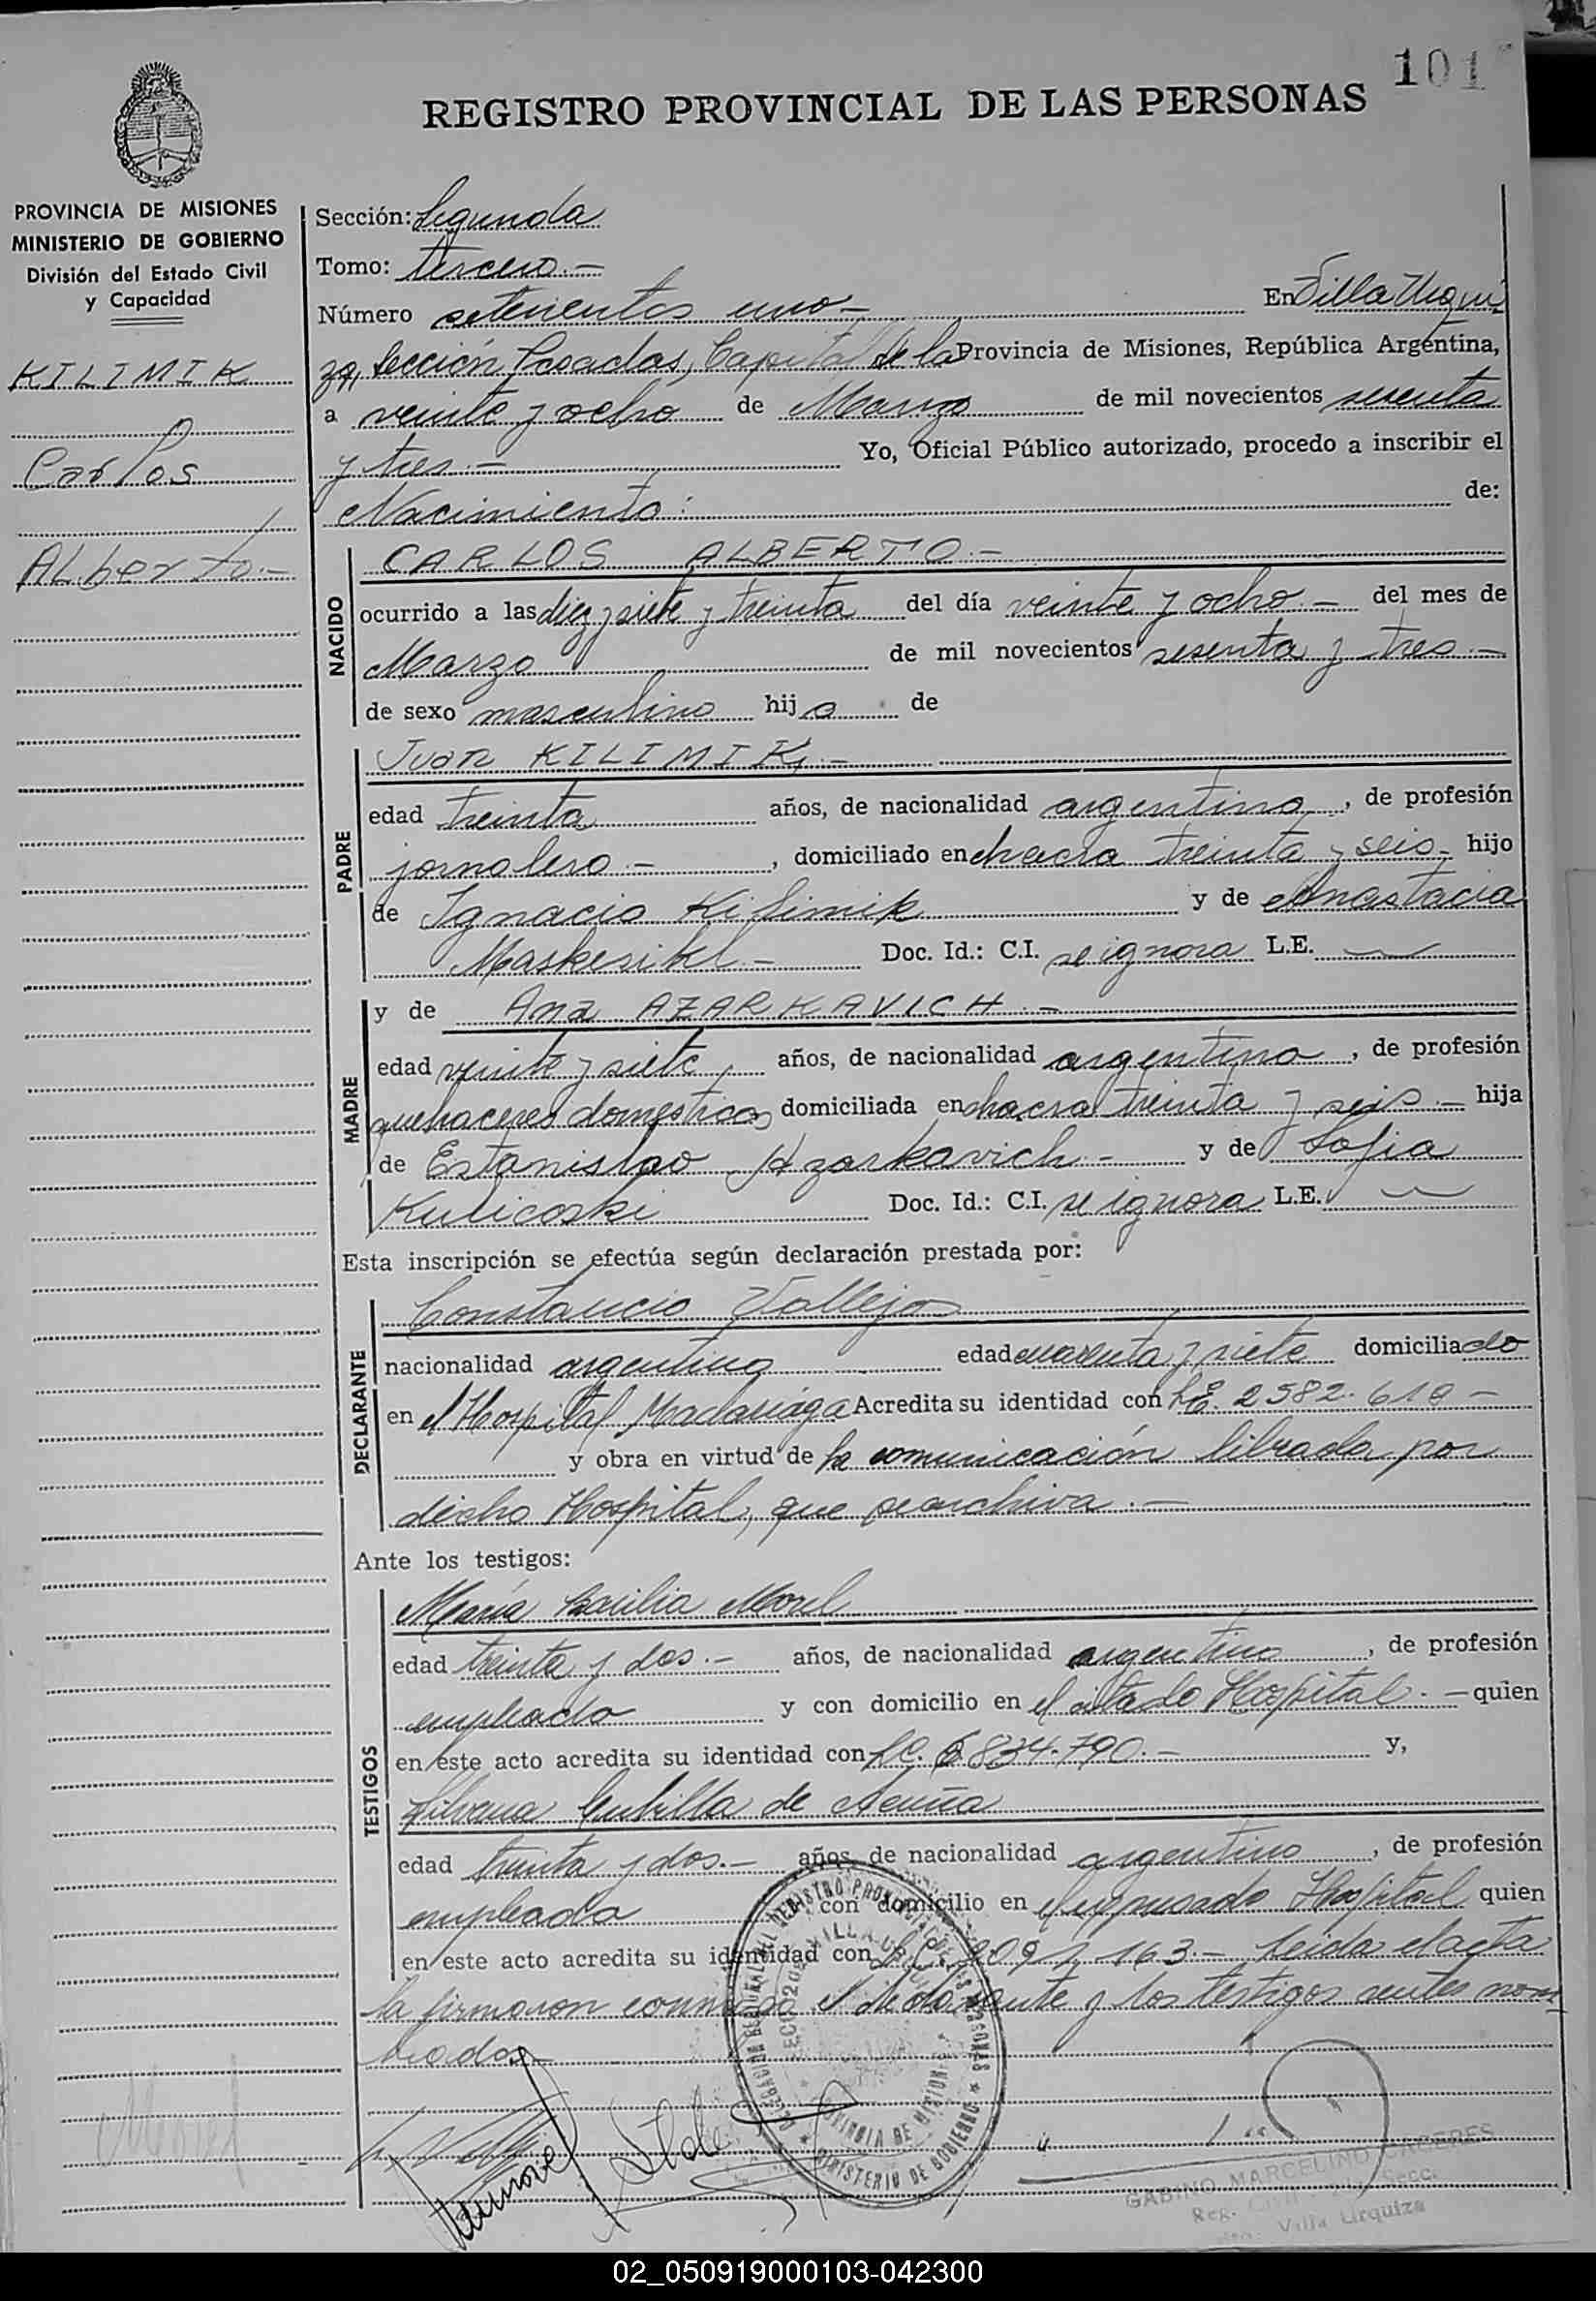 101
REGISTRO PROVINCIAL DE LAS PERSONAS
PROVINCIA DE MISIONES
MINISTERIO DE GOBIERNO
División del Estado Civil
y Capacidad
KILIMIK
Carlos
ALberto.-
Sección: Segunda
Tomo: tercero.-
Número setecientos uno- En Villa Urqui
za, Sección Posadas, Capital de la Provincia de Misiones, República Argentina,
a veinte y ocho de Marzo de mil novecientos sesenta
y tres.- Yo, Oficial Público autorizado, procedo a inscribir el
Nacimiento: de:
NACIDO
CARLOS ALBERTO.-
ocurrido a las diez y siete y treinta del día veinte y ocho.- del mes de
Marzo de mil novecientos sesenta y tres.-
de sexo masculino hijo de
PADRE
Juan KILIMIK.-
edad treinta años, de nacionalidad argentina, de profesión
jornalero.-, domiciliado en chacra treinta y seis- hijo
de Ignacio Kilimik y de Anastacia
Doc. Id.: C.I. se ignora L.E.
MADRE
y de Ana AZARKAVICH.-
edad veinte y siete, años, de nacionalidad argentina, de profesión
quehaceres domesticos domiciliada en chacra treinta y seis.- hija
de Estanislao Azarkavich- y de Sofia
Kulicoski Doc. Id.: C.I. se ignora L.E.
Esta inscripción se efectúa según declaración prestada por:
DECLARANTE
Constancio Vallejos
nacionalidad argentina edad cuarenta y siete domiciliado
en el Hospital Madariaga Acredita su identidad con L.E. 2582.618-
y obra en virtud de la comunicación librada por
dicho Hospital, que se archiva.-
Ante los testigos:
TESTIGOS
María Basilia Morel
edad treinta y dos.- años, de nacionalidad argentina, de profesión
empleada y con domicilio en el citado Hospital.- quien
en este acto acredita su identidad con L.C. 6834.790.- y,
de Acuña
edad treinta y dos.- años, de nacionalidad argentina, de profesión
empleada con domicilio en el expresado Hospital quien
en este acto acredita su identidad con L.C. 163.- Leida el acta
la firmaron conmigo el declarante y los testigos antes nom
brados-
GABINO MARCELINO CACERES
Villa Urquiza
02_050919000103-042300